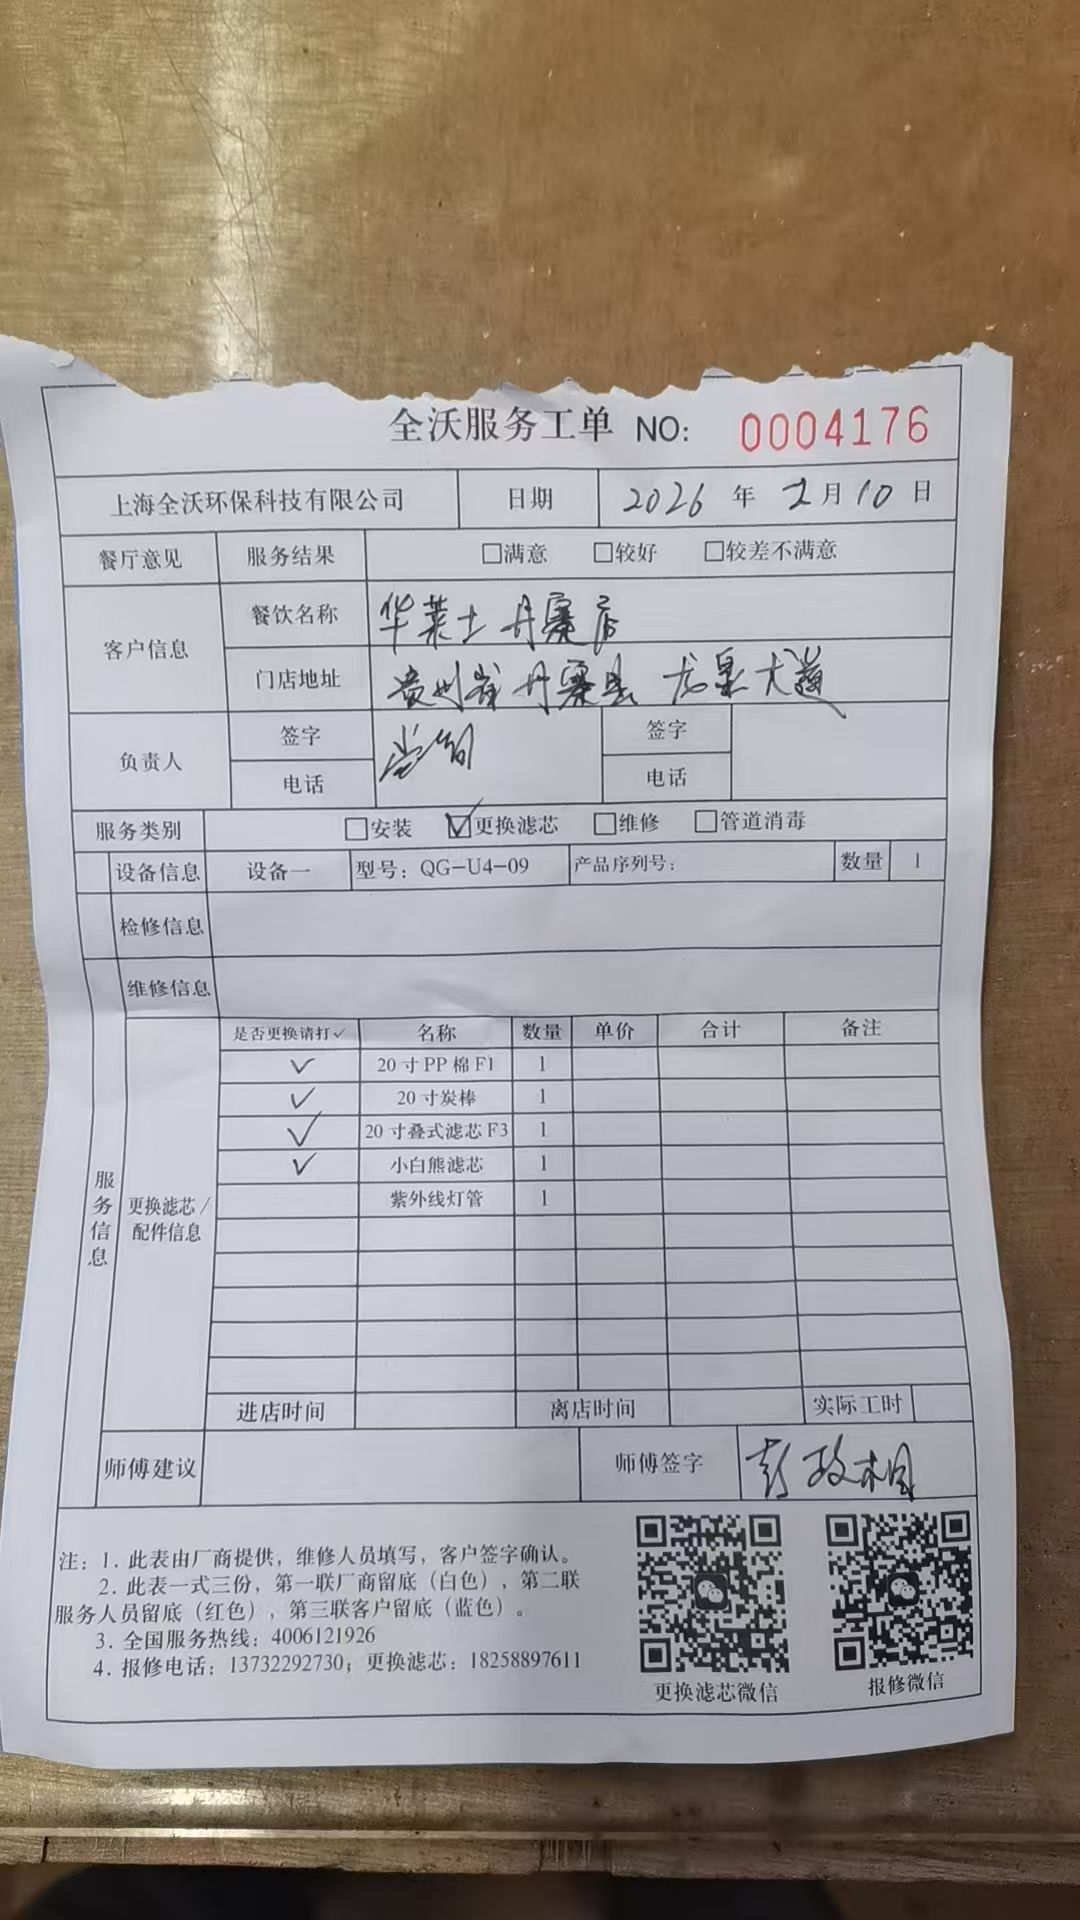 全沃服务工单 NO: 0004176
上海全沃环保科技有限公司 日期 2026年2月10日
餐厅意见 服务结果 □满意 □较好 □较差不满意
客户信息 餐饮名称 华莱士丹寨店
门店地址 贵州省丹寨县龙泉大道
负责人 签字 签字
电话 电话
服务类别 □安装 ☑更换滤芯 □维修 □管道消毒
设备信息 设备一 型号：QG-U4-09 产品序列号： 数量 1
检修信息
维修信息
服务信息
更换滤芯/
配件信息
是否更换请打✓ 名称 数量 单价 合计 备注
✓ 20寸PP棉F1 1
✓ 20寸炭棒 1
✓ 20寸叠式滤芯F3 1
✓ 小白熊滤芯 1
紫外线灯管 1
进店时间 离店时间 实际工时
师傅建议 师傅签字 彭政相
注：1. 此表由厂商提供，维修人员填写，客户签字确认。
2. 此表一式三份，第一联厂商留底（白色），第二联
服务人员留底（红色），第三联客户留底（蓝色）。
3. 全国服务热线：4006121926
4. 报修电话：13732292730；更换滤芯：18258897611
更换滤芯微信 报修微信